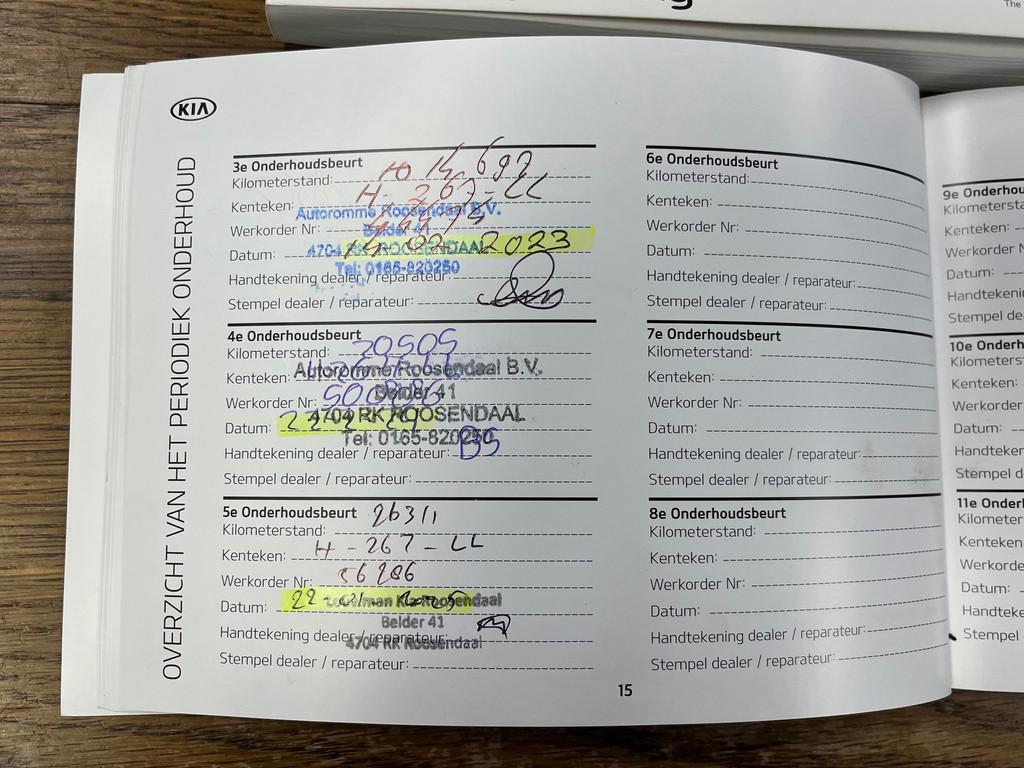 The
KIA
OVERZICHT VAN HET PERIODIEK ONDERHOUD
3e Onderhoudsbeurt
Kilometerstand:
Kenteken: H-267-LL
Autoromme Roosendaal B.V.
Werkorder Nr:
Belder 41
Datum: 2023
4704 RK ROOSENDAAL
Tel: 0165-820250
Handtekening dealer / reparateur:
Stempel dealer / reparateur:
4e Onderhoudsbeurt
Kilometerstand: 20505
Kenteken:
Autoromme Roosendaal B.V.
Werkorder Nr:
Belder 41
4704 RK ROOSENDAAL
Datum:
Tel: 0165-820250
Handtekening dealer / reparateur: BS
Stempel dealer / reparateur:
5e Onderhoudsbeurt
Kilometerstand: 26311
Kenteken: H-267-LL
Werkorder Nr: 56286
Datum: 22-01-2025
Kia Roosendaal
Belder 41
Handtekening dealer / reparateur:
4704 RK Roosendaal
Stempel dealer / reparateur:
6e Onderhoudsbeurt
Kilometerstand:
Kenteken:
Werkorder Nr:
Datum:
Handtekening dealer / reparateur:
Stempel dealer / reparateur:
7e Onderhoudsbeurt
Kilometerstand:
Kenteken:
Werkorder Nr:
Datum:
Handtekening dealer / reparateur:
Stempel dealer / reparateur:
8e Onderhoudsbeurt
Kilometerstand:
Kenteken:
Werkorder Nr:
Datum:
Handtekening dealer / reparateur:
Stempel dealer / reparateur:
15
9e Onderhou
Kilometersta
Kenteken:
Werkorder N
Datum:
Handtekenin
Stempel de
10e Onderh
Kilometers
Kenteken:
Werkorder
Datum:
Handteken
Stempel d
11e Onder
Kilometer
Kenteken
Werkorde
Datum:
Handteke
Stempel